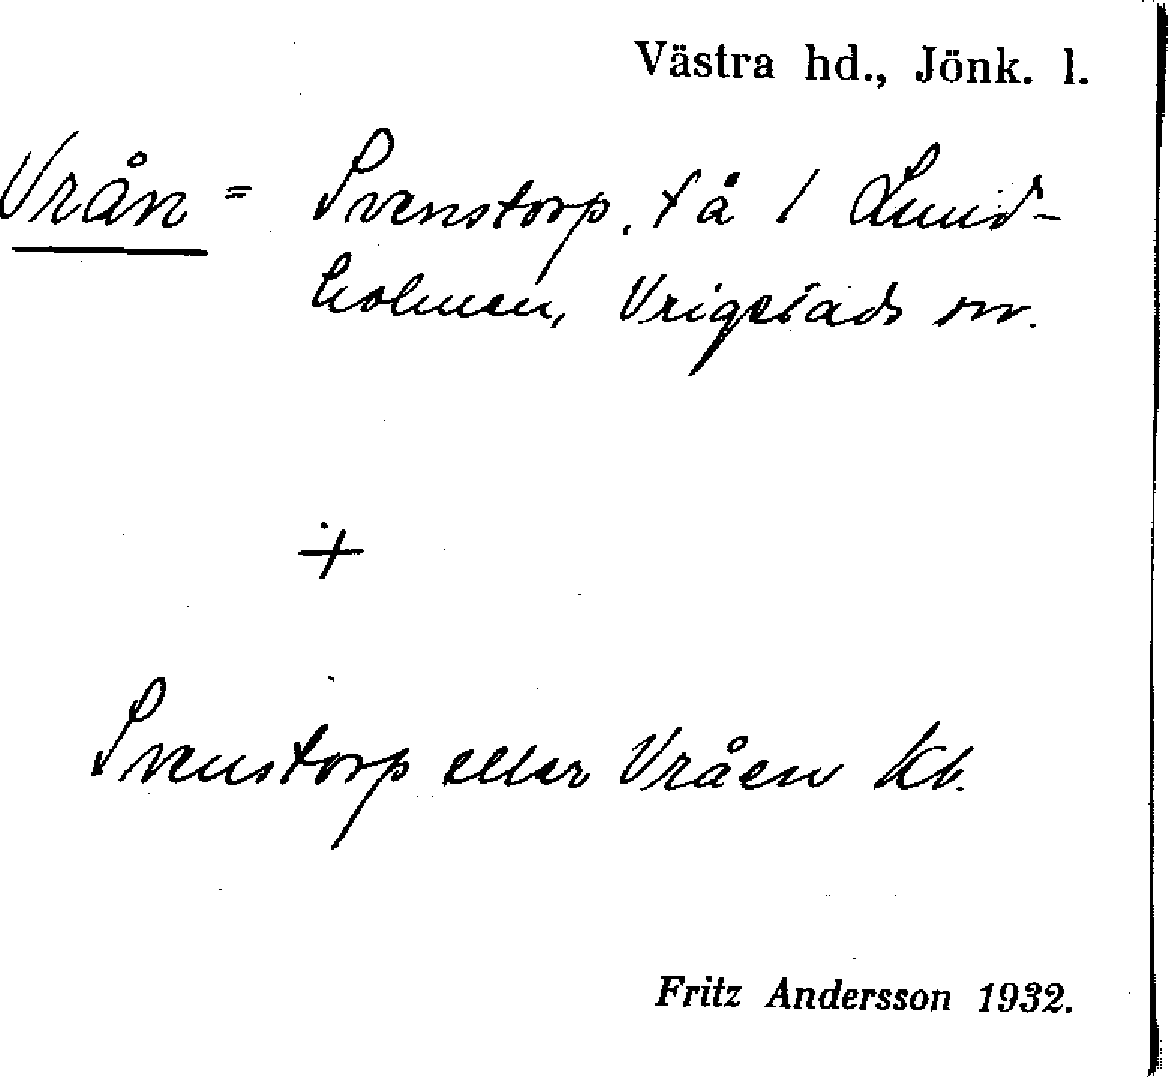 Västra hd., Jönk. l.
Vrån = Svenstorp, t å 1 Lund-
holmen, Vrigstads sn.
+
Svenstorp eller Vråen Kb.
Fritz Andersson 1932.